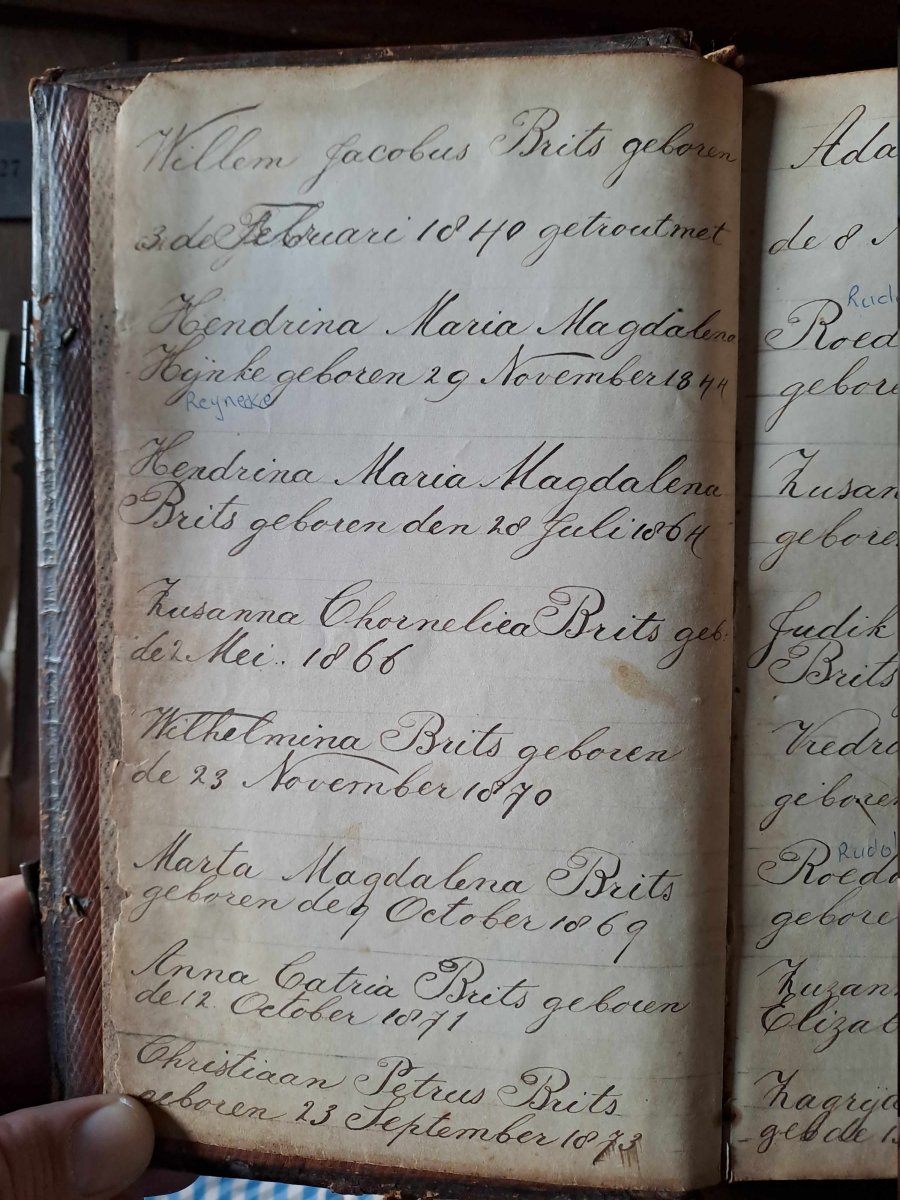 Willem Jacobus Brits geboren
3 de Februari 1840 getrout met
Hendrina Maria Magdalena
Hijnke geboren 29 November 1844
Reyneke
Hendrina Maria Magdalena
Brits geboren den 28 Juli 1864
Zusanna Chorneliea Brits geb:
de 2 Mei.. 1866
Wilhelmina Brits geboren
de 23 November 1870
Marta Magdalena Brits
geboren de 9 October 1869
Anna Catria Brits geboren
de 12. October 1871
Christiaan Petrus Brits
geboren 23 September 1873
Ada
de 8
Rudo
Roed
gebore
Zusan
gebore
Judik
Brits
Vredr
giboren
Rudol
Roed
gebore
Zuzan
Elizab
Zagrya
geb de 1
27